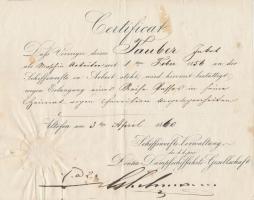 Certificat
Dass Vorzeiger dieses Tauber Jakob
als Maschin Arbeiter seit 1 ten Febr. 1856 in der
Schiffswerfte in Arbeit steht, wird hiermit bestättigt
wegen Erlangung eines Reise Passes in seine
Heimat wegen Familien Angelegenheiten
Altofen am 3 ten April 1860
Schiffswerfts-Verwaltung
der k. k. priv.
Donau-Dampfschiffahrts-Gesellschaft